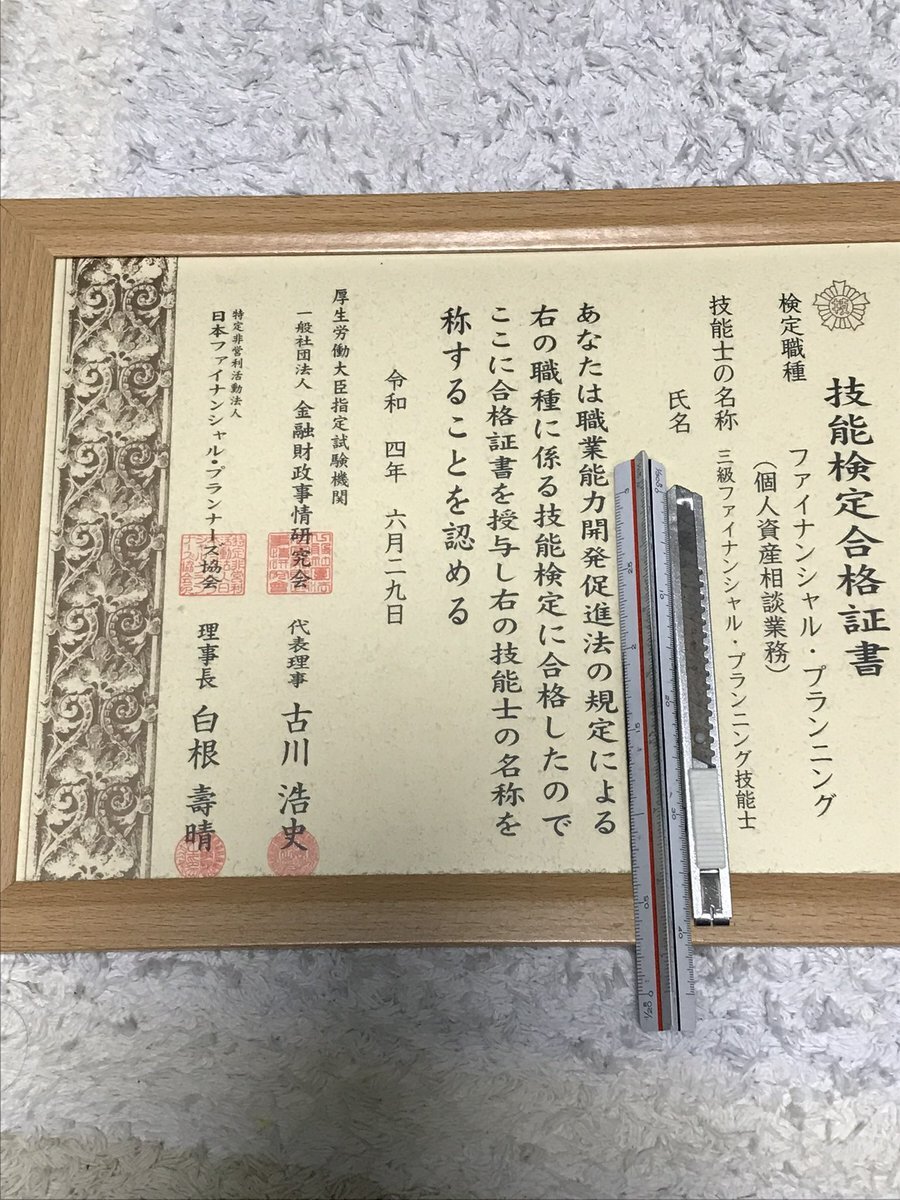 技能検定合格証書
検定職種
ファイナンシャル・プランニング
（個人資産相談業務）
技能士の名称
三級ファイナンシャル・プランニング技能士
氏名
あなたは職業能力開発促進法の規定による
右の職種に係る技能検定に合格したので
ここに合格証書を授与し右の技能士の名称を
称することを認める
令和 四年 六月二九日
厚生労働大臣指定試験機関
一般社団法人 金融財政事情研究会 代表理事 古川 浩史
特定非営利活動法人
日本ファイナンシャル・プランナーズ協会 理事長 白根 壽晴